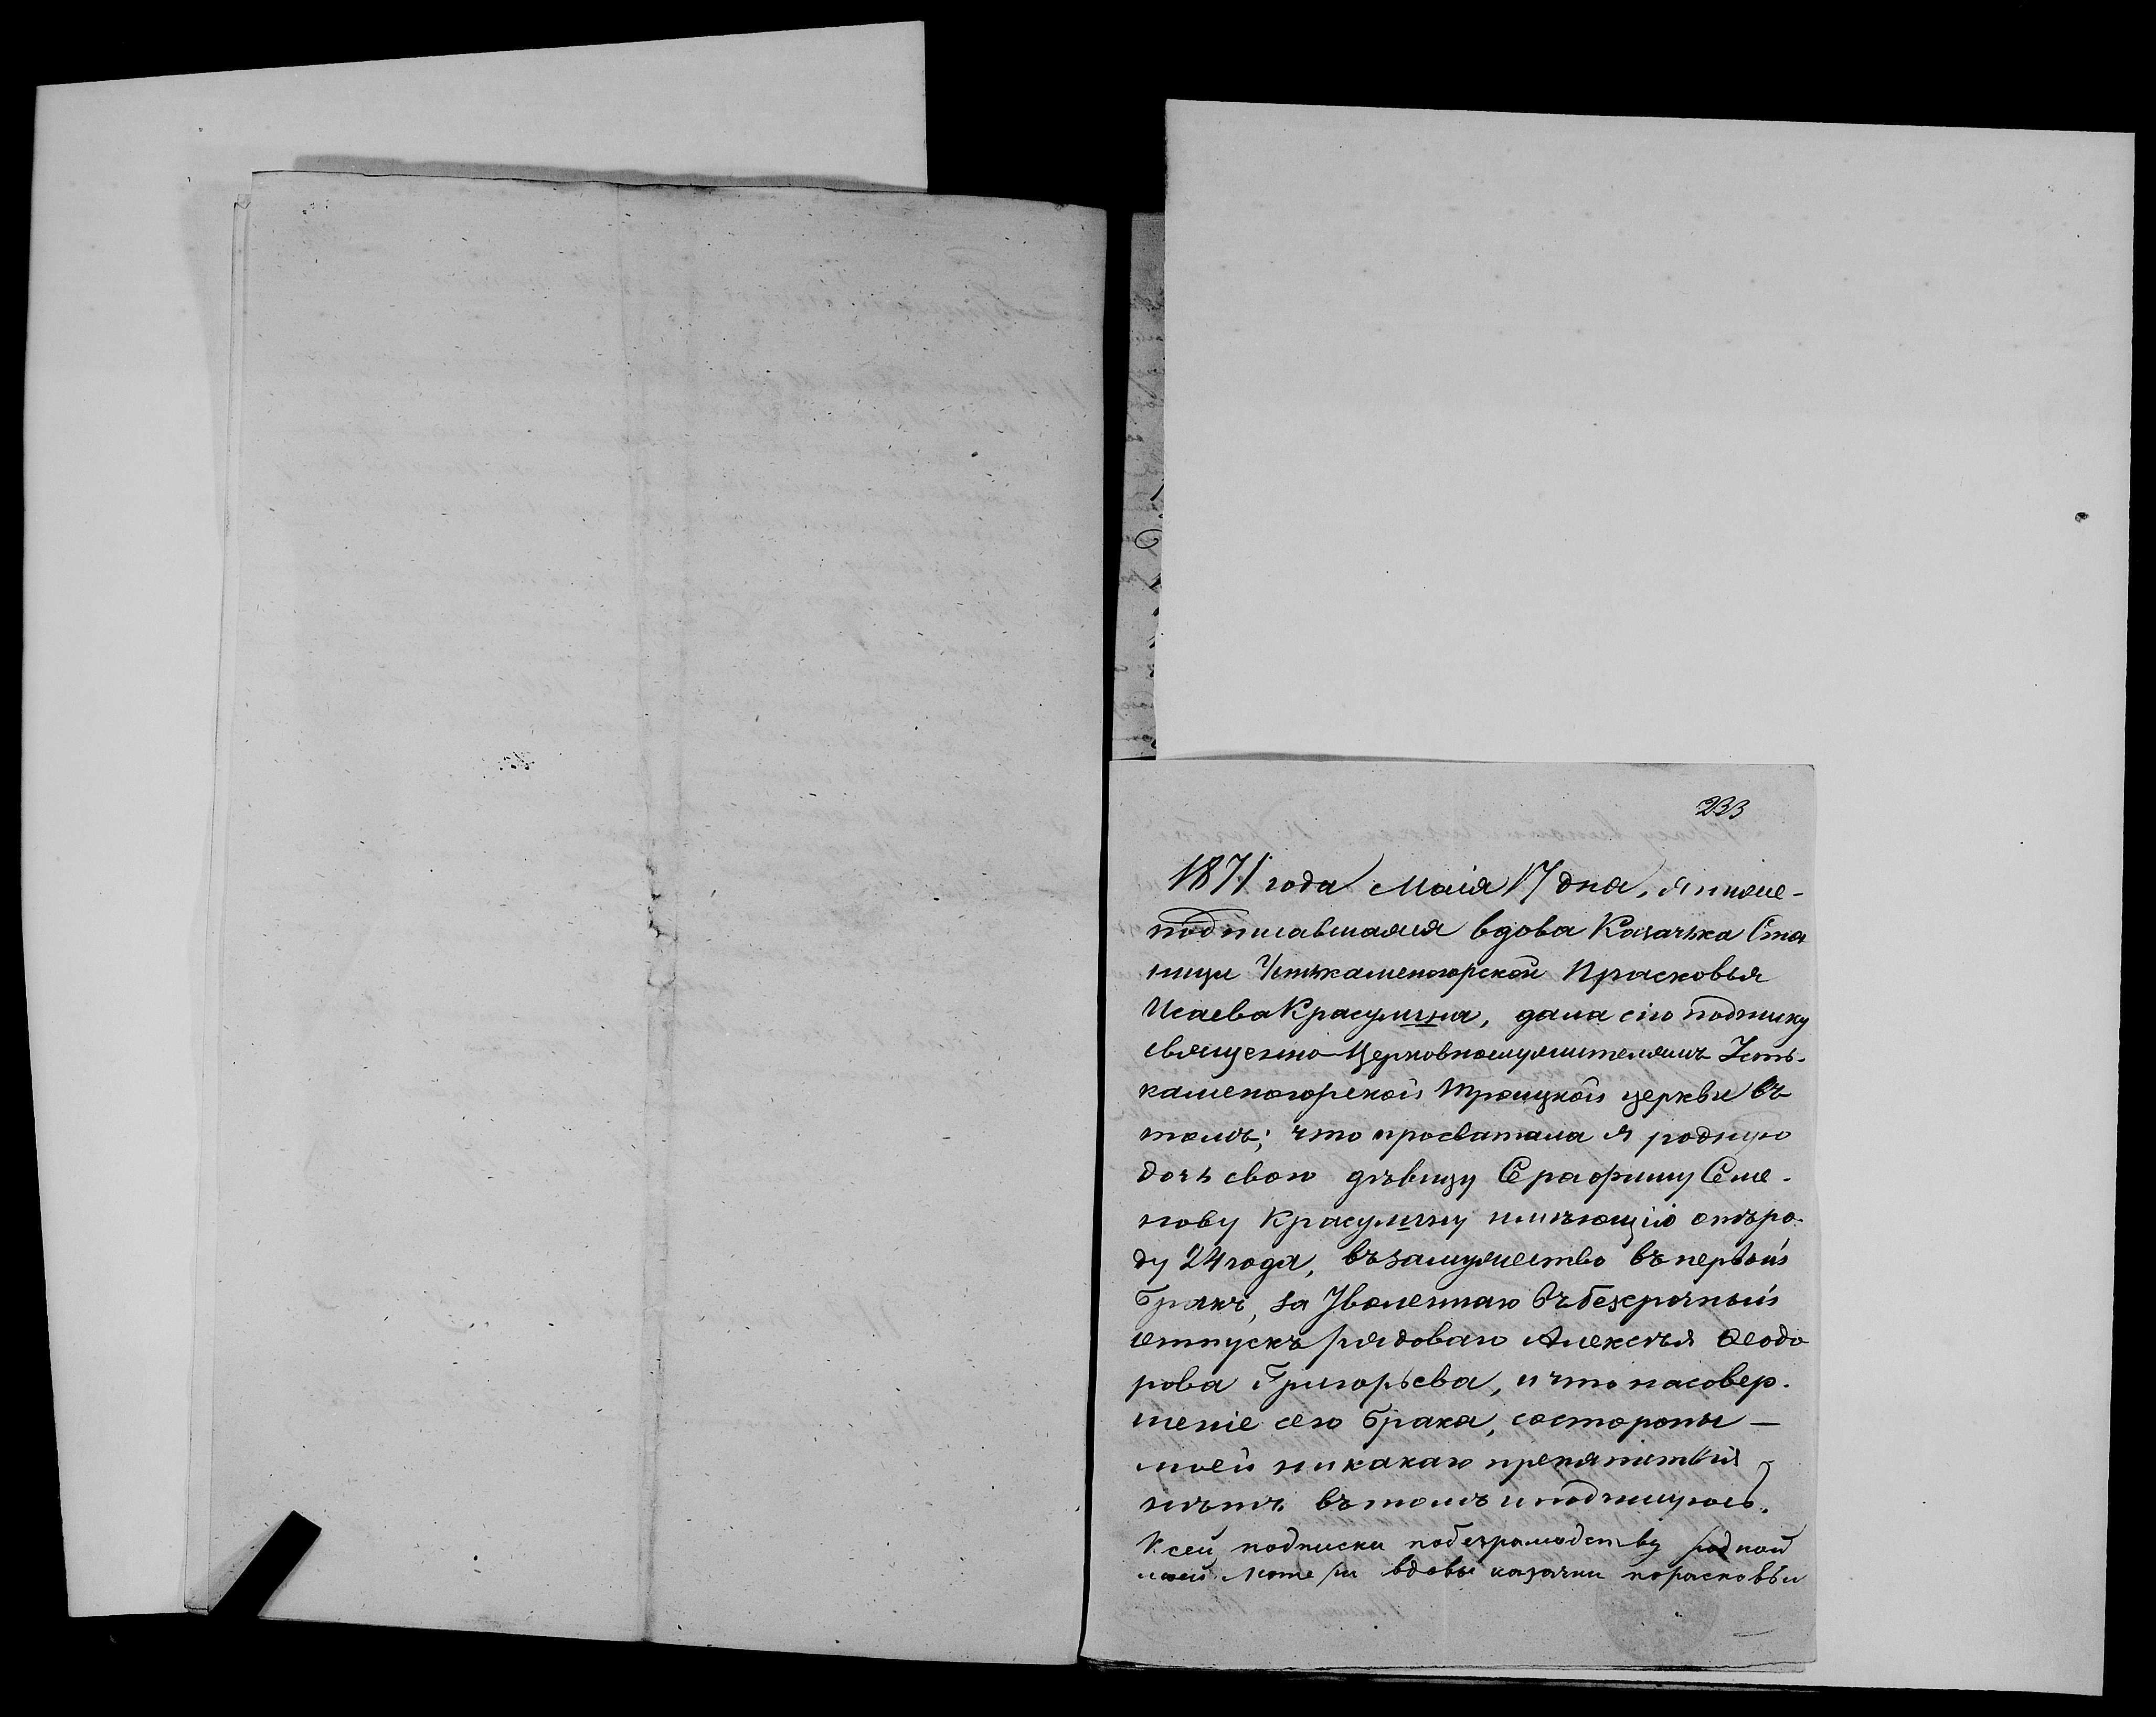 233
1871 года Маія 17 дня, я ниже-
подписавшаяся вдова Казачька Ста
ницы Устькаменогорской Прасковья
Исаева Красулина, дала сію подписку
священно-Церковнослужителямъ Усть-
каменогорской Троицкой церкви въ
томъ; что просватала я родную
дочь свою дѣвицу Серафиму Семе-
нову Красулину имѣющую отъро-
ду 24 года, въ замужество въ первый
бракъ, за Уволеннаго въ безсрочный
отпускъ рядоваго Алексѣя Ѳеодо
рова Григорьева, и что на совер-
шеніе сего брака, со стороны —
моей никакаго препятствія
нѣтъ въ томъ и подпишуюсь.
К сей подписки по безграмодству родной
моей матери вдовы казачки порасковьи